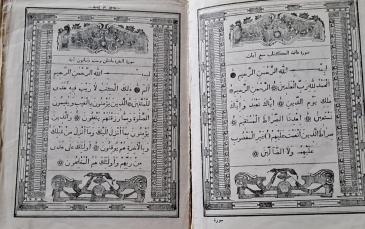 سورة فاتحة الكتاب سبع آيات
بسم الله الرحمن الرحيم
الحمد لله رب العلمين الرحمن الرحيم
ملك يوم الدين اياك نعبد واياك
نستعين اهدنا الصراط المستقيم
صراط الذين انعمت عليهم غير المغضوب
عليهم ولا الضالين
سورة
سورة البقرة مائتان وست وثمانون آية
بسم الله الرحمن الرحيم
الم ذلك الكتب لا ريب فيه هدى
للمتقين الذين يؤمنون بالغيب ويقيمون
الصلوة ومما رزقنهم ينفقون والذين
يؤمنون بما انزل اليك وما انزل من قبلك
وبالاخرة هم يوقنون اولئك على هدى
من ربهم واولئك هم المفلحون